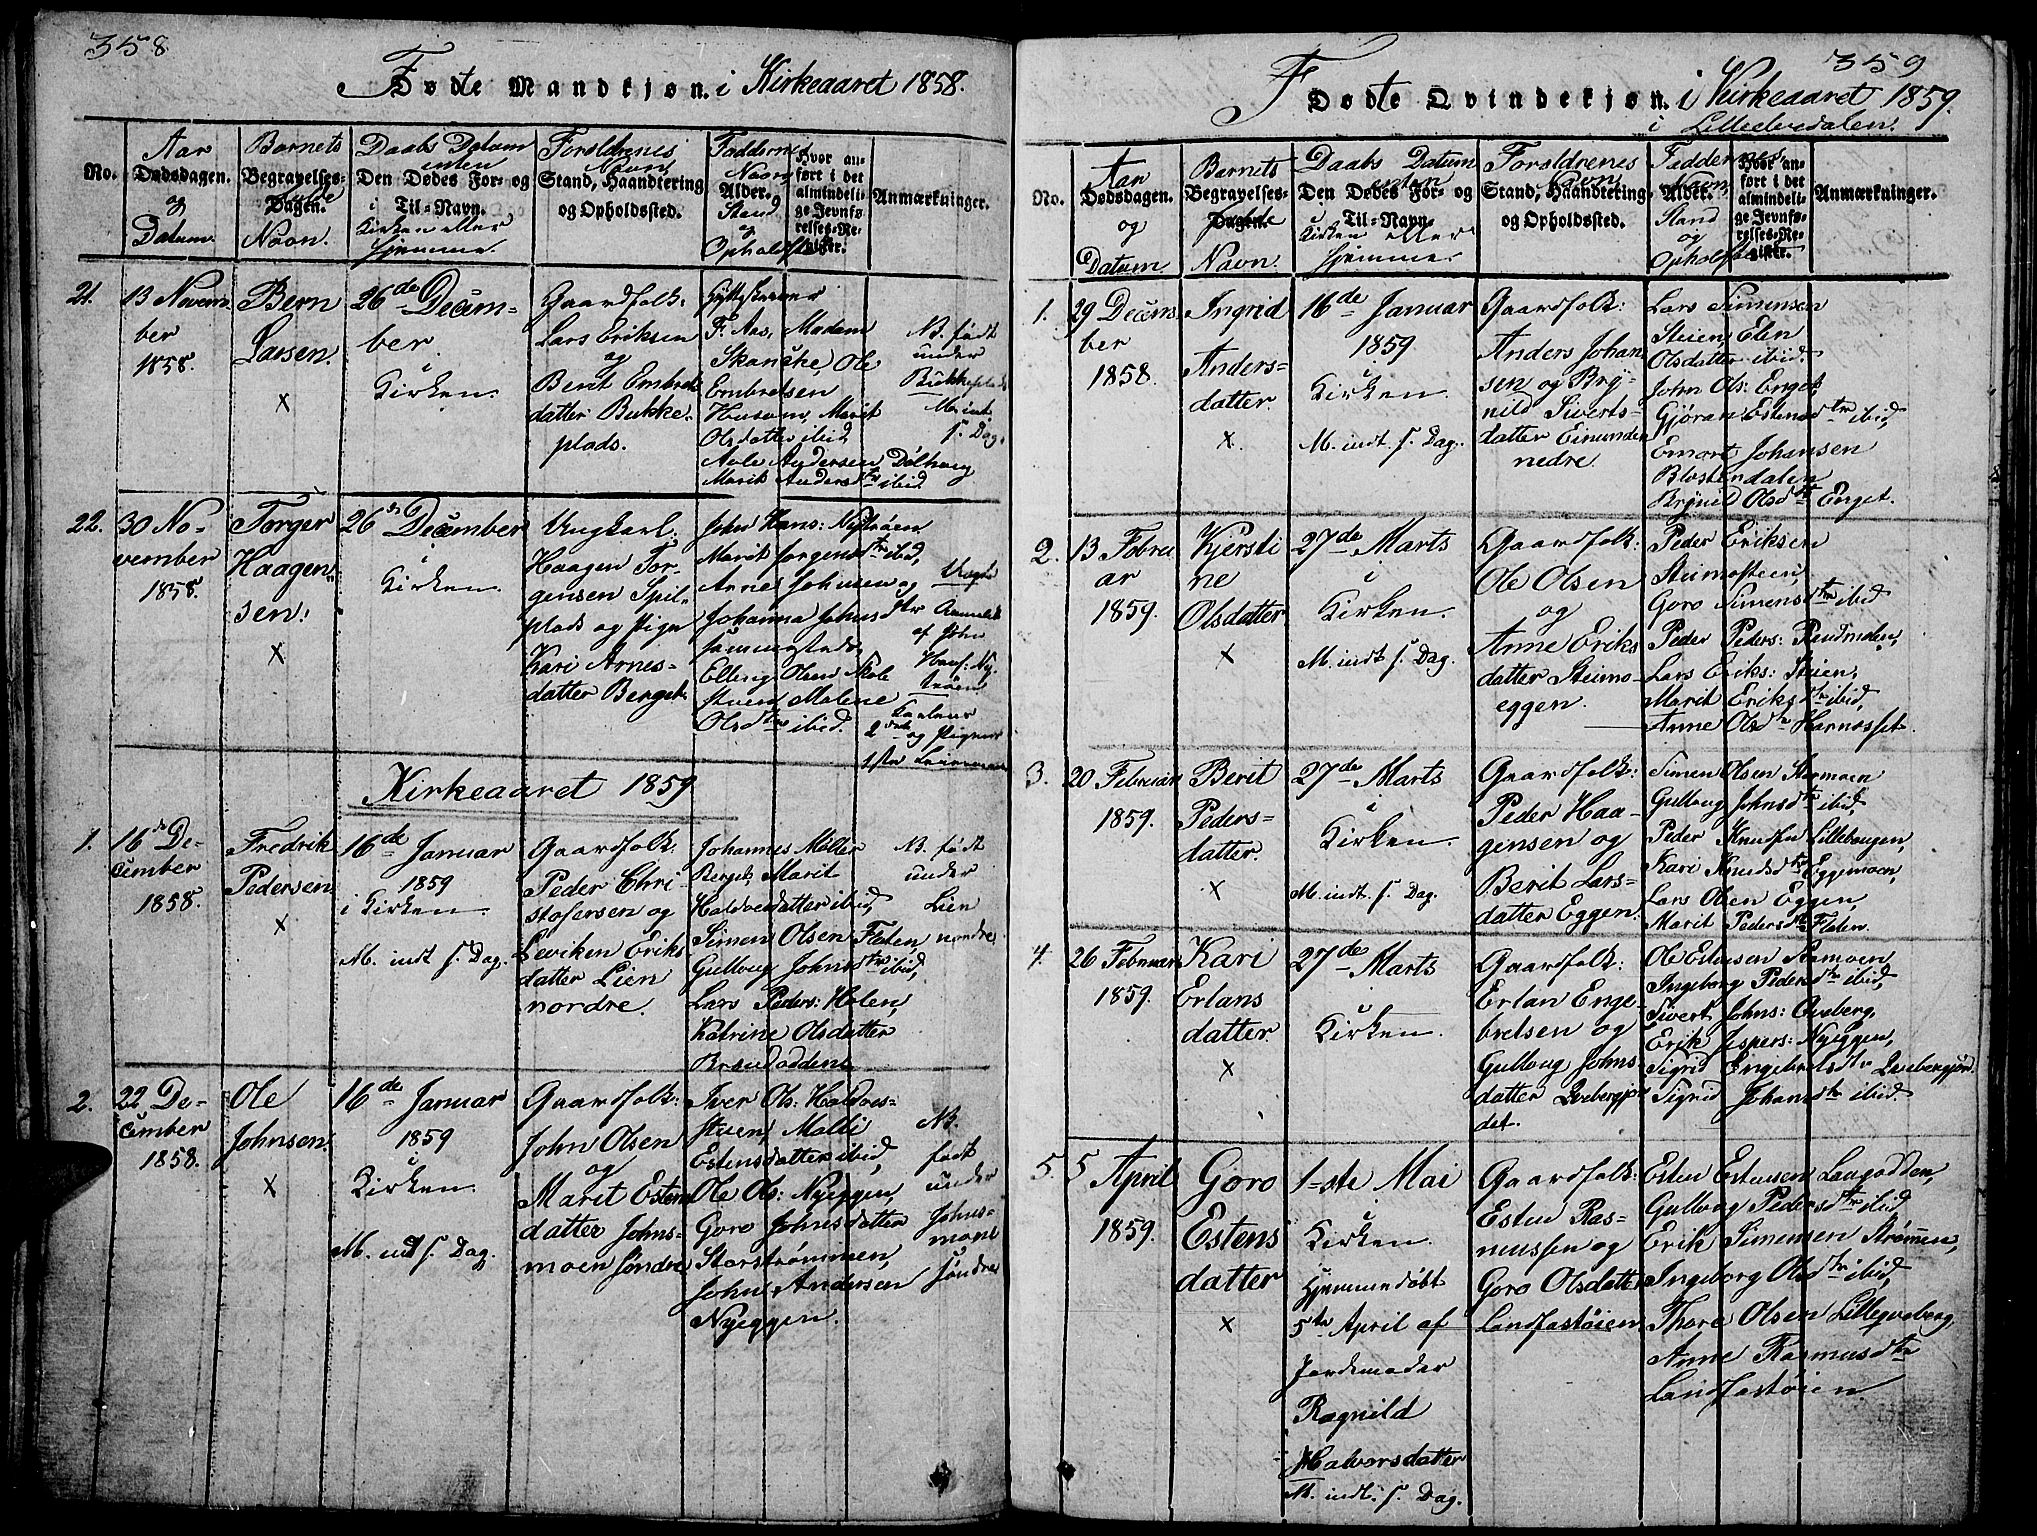 358
Fødte Mandkjøn. i Kirkeaaret 1858.
No.
Aar
Dødsdagen.
og
Datum.
Barnets
Begravelses-
Dagen.
Navn.
Daabs Datum
enten
Den Dødes For- og
i Til-Navn.
Kirken eller
hjemme.
Forældrenes
Navn
Stand, Haandtering
og Opholdssted.
Faddernes
Navn
Alder.
Stand
og
Opholdssted
Hvor an-
ført i det
almindeli-
ge Jevnfø-
relses-Re-
gister.
Anmærkninger.
21.
13 Novem-
ber
1858.
Bern
Larsen.
x
26de Decem-
ber.
i
Kirken.
Gaardfolk:
Lars Eriksen
og
Berit Embrets
datter Bukke-
plads.
F. Aas, Madam
Skancke, Ole
Embretsen
Husom, Marit
Olsdatter ibid,
Andersen Dølhaug
Marit Andersdtr ibid
NB. født
under
Bukkeplads
M. indt.
s. Dag.
22.
30 No-
vember
1858.
Torger
Haagen-
sen.
x
26de December
i
Kirken.
Ungkarl.
Haagen Tor-
gensen Spil-
plads og Pige
Kari Arnes-
datter Berget.
John Hans: Nystrøen
Marit Jorgensdtr ibid,
Arnes Johnsen og
Johanna Johnsdtr
Elling Olsen Mole
stuen, Malene
Olsdtr ibid.
af John
Hans: Ny-
strøen
og Pigens
Kirkeaaret 1859
1.
16de De-
cember
1858.
Fredrik
Pedersen
x
16de Januar
1859
i Kirken.
M. indt s. Dag.
Gaardfolk:
Peder Chri-
stofersen og
Leviken Eriks
datter Lien
nordre.
Johannes Møller
Berget, Marit
Haldorsdatter ibid,
Simen Olsen Fløten
Gullaug Johnsdtr ibid,
Lars Peders: Holen,
Katrine Olsdatter
Brændodden
NB. født
under
Lien
nordre
2.
22 De-
cember
1858.
Ole
Johnsen.
x
16de Januar
1859
i
Kirken.
M. indt s. Dag.
Gaardfolk:
John Olsen
og
Marit Estens
datter Johns-
moen søndre
Iver Ols: Haldors-
stuen, Malli
Estensdatter ibid,
Ole Ols: Nyeggen,
Goro Johnsdatter
Storstrømmen,
John Andersen
Nyeggen.
NB.
født
under
Johns-
moen
søndre
359
Fødte Qvindekjøn. i Kirkeaaret 1859.
i Lilleelvedalen.
No.
Aar
Dødsdagen.
og
Datum
Barnets
Begravelses-
Dagen.
Navn.
Daabs Datum
enten
Den Dødes For- og
i Til-Navn.
Kirken eller
hjemme.
Forældrenes
Navn
Stand, Haandtering
og Opholdssted.
Faddernes
Navn
Alder.
Stand
og
Opholdssted
Hvor an-
ført i det
almindeli-
ge Jevnfø-
relses-Re-
gister.
Anmærkninger.
1.
29 Decem-
ber
1858.
Ingrid
Anders-
datter.
x
16de Januar
1859
i
Kirken.
M. indt s. Dag.
Gaardfolk:
Anders Johan-
sen og Bry-
nild Siverts-
datter Eimunden
nedre.
Lars Simensen
Steien, Elen
Olsdatter ibid.
John Ols: Enget,
Gjøran Estensdtr ibid,
Emort Johansen
Blæsterdalen
Brynil Olsdtr Enget.
2.
13 Febru
ar
1859.
Kjersti
ne
Olsdatter
x
27de Marts
i
Kirken.
M. indt s. Dag.
Gaardfolk:
Ole Olsen
og
Anne Eriks
datter Steimo-
eggen.
Peder Eriksen
Steimosteen,
Goro Simensdtr ibid
Peder Peders: Rundmolen,
Lars Eriks: Steien,
Marit Eriksdtr ibid,
Anne Olsdtr Harnæsset.
3.
20 Februar
1859.
Berit
Peders-
datter.
x
27de Marts
i
Kirken.
M. indt s. Dag.
Gaardfolk:
Peder Haa-
gensen og
Berit Lars-
datter Eggen.
Simen Olsen Stormoen
Gullaug Johnsdtr ibid,
Peder Knudsen Lillehaugen,
Kari Knudsdtr Eggemoen,
Lars Olsen Eggen,
Marit Pedersdtr Fløten.
4.
26 Februar
1859.
Kari
Erlans
datter.
x
27de Marts
i
Kirken.
Gaardfolk:
Erlan Enge-
bretsen og
Gullaug Johns
datter Qvebergjor
det.
Ole Estensen Aamoen,
Ingeborg Pedersdtr ibid,
Sivert Johns: Qveberg,
Erik Jespers: Nyeggen,
Sigrid Engebretsdtr Qvebergjord.
Sigrid Johansdtr ibid.
5.
5 April
1859.
Goro
Estens
datter
x
1-ste Mai
i
Kirken.
Hjemmedøbt
5te April af
Jordemoder
Ragnild
Halvorsdatter
M. indt. s. Dag.
Gaardfolk:
Esten Ras-
mussen og
Goro Olsdatter
Landfastøien.
Esten Estensen Langodden,
Gullaug Pedersdtr ibid
Erik Simensen Strømmen,
Ingeborg Olsdtr ibid,
Thore Olsen Lilleqveberg,
Anne Rasmusdtr
Landfastøien